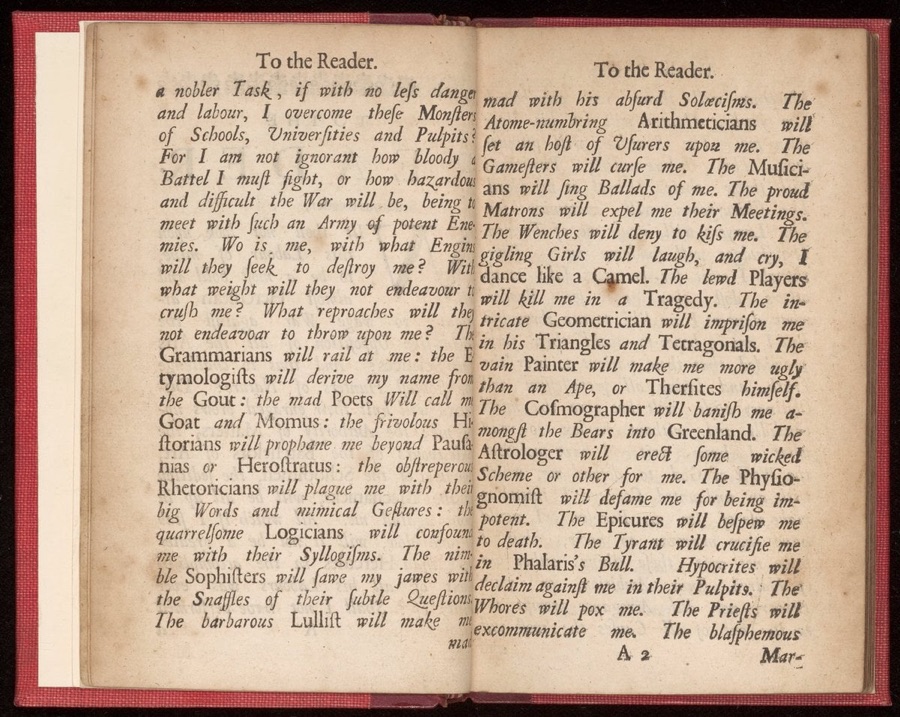 To the Reader.
a nobler Task, if with no leſs danger
and labour, I overcome theſe Monſters
of Schools, Univerſities and Pulpits?
For I am not ignorant how bloody a
Battel I muſt fight, or how hazardous
and difficult the War will be, being to
meet with ſuch an Army of potent Ene-
mies. Wo is me, with what Engins
will they ſeek to deſtroy me? With
what weight will they not endeavour to
cruſh me? What reproaches will they
not endeavoar to throw upon me? The
Grammarians will rail at me: the E-
tymologiſts will derive my name from
the Gout: the mad Poets Will call me
Goat and Momus: the frivolous Hi-
ſtorians will prophane me beyond Pauſa-
nias or Heroſtratus: the obſtreperous
Rhetoricians will plague me with their
big Words and mimical Geſtures: the
quarrelſome Logicians will confound
me with their Syllogiſms. The nim-
ble Sophiſters will ſawe my jawes with
the Snaffles of their ſubtle Queſtions.
The barbarous Lulliſt will make me
mad
To the Reader.
mad with his abſurd Solœciſms. The
Atome-numbring Arithmeticians will
ſet an hoſt of Uſurers upon me. The
Gameſters will curſe me. The Muſici-
ans will ſing Ballads of me. The proud
Matrons will expel me their Meetings.
The Wenches will deny to kiſs me. The
gigling Girls will laugh, and cry, I
dance like a Camel. The lewd Players
will kill me in a Tragedy. The in-
tricate Geometrician will impriſon me
in his Triangles and Tetragonals. The
vain Painter will make me more ugly
than an Ape, or Therſites himſelf.
The Coſmographer will baniſh me a-
mongſt the Bears into Greenland. The
Aſtrologer will erect ſome wicked
Scheme or other for me. The Phyſio-
gnomiſt will defame me for being im-
potent. The Epicures will beſpew me
to death. The Tyrant will crucifie me
in Phalaris's Bull. Hypocrites will
declaim againſt me in their Pulpits. The
Whores will pox me. The Prieſts will
excommunicate me. The blaſphemous
A 2 Mar-